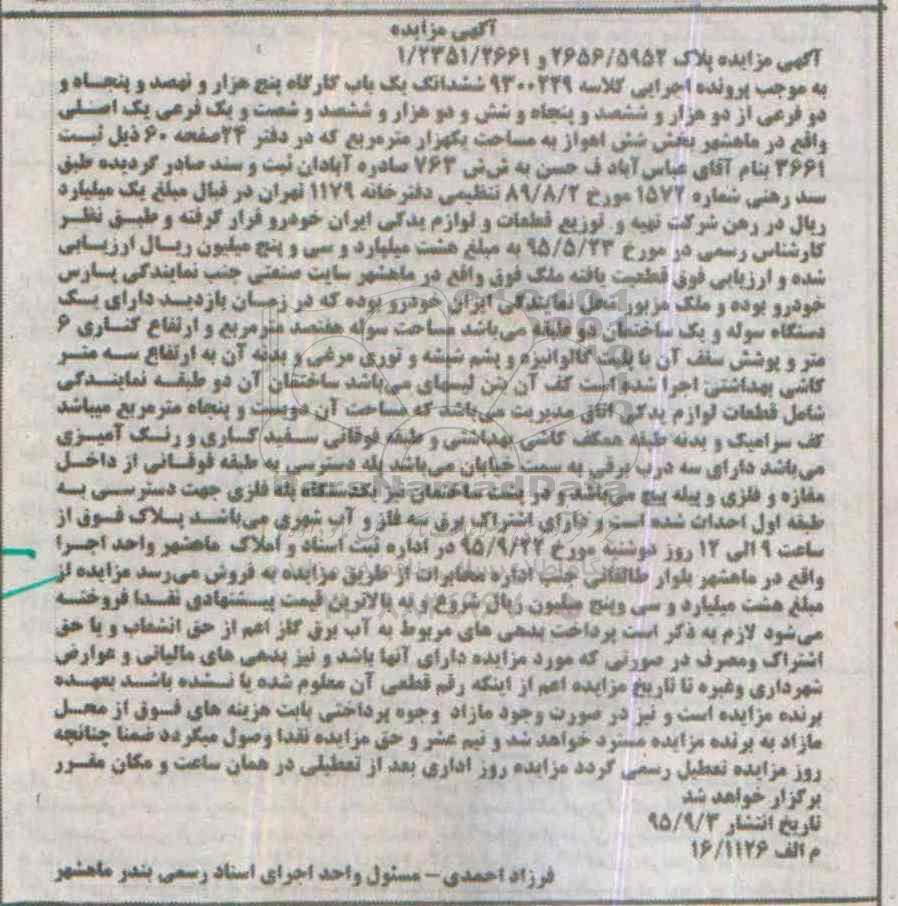 آگهی مزایده
آگهی مزایده پلاک ۲۶۵۶/۵۹۵۲ و ۱/۲۳۵۱/۲۶۶۱
به موجب پرونده اجرایی کلاسه ۹۳۰۰۲۴۹ ششدانگ یک باب کارگاه پنج هزار و نهصد و پنجاه و
دو فرعی از دو هزار و ششصد و پنجاه و شش و دو هزار و ششصد و شصت و یک فرعی یک اصلی
واقع در ماهشهر بخش شش اهواز به مساحت یکهزار مترمربع که در دفتر ۲۴صفحه ۶۰ ذیل ثبت
۳۶۶۱ بنام آقای عباس آباد ف حسن به ش ش ۷۶۳ صادره آبادان ثبت و سند صادر گردیده طبق
سد رهنی شماره ۱۵۷۲ مورخ ۸۹/۸/۲ تنظیمی دفترخانه ۱۱۷۹ تهران در قبال مبلغ یک میلیارد
ریال در رهن شرکت تهیه و توزیع قطعات و لوازم یدکی ایران خودرو قرار گرفته و طبق نظر
کارشناس رسمی در مورخ ۹۵/۵/۲۳ به مبلغ هشت میلیارد و سی و پنج میلیون ریال ارزیابی
شده و ارزیابی فوق قطعیت یافته ملک فوق واقع در ماهشهر سایت صنعتی جنب نمایندگی پارس
خودرو بوده و ملک مزبور محل نمایندگی ایران خودرو بوده که در زمان بازدید دارای یک
دستگاه سوله و یک ساختمان دو طبقه می‌باشد مساحت سوله هفتصد مترمربع و ارتفاع کناری ۶
متر و پوشش سقف آن با پلیت گالوانیزه و پشم شیشه و توری مرغی و بدنه آن به ارتفاع سه متر
کاشی بهداشتی اجرا شده است کف آن بتن لیسهای می‌باشد ساختمان آن دو طبقه نمایندگی
شامل قطعات لوازم یدکی اتاق مدیریت می‌باشد که مساحت آن دویست و پنجاه مترمربع میباشد
کف سرامیک و بدنه طبقه همکف کاشی بهداشتی و طبقه فوقانی سفید کاری و رنگ آمیزی
می‌باشد دارای سه درب برقی به سمت خیابان می‌باشد پله دسترسی به طبقه فوقانی از داخل
مغازه و فلزی و پیله پیچ می‌باشد و در پشت ساختمان نیز یکدستگاه پله فلزی جهت دسترسی به
طبقه اول احداث شده است و دارای اشتراک برق سه فلز و آب شهری می‌باشد پلاک فوق از
ساعت ۹ الی ۱۲ روز دوشنبه مورخ ۹۵/۹/۲۲ در اداره ثبت اسناد و املاک ماهشهر واحد اجرا
واقع در ماهشهر بلوار طالقانی جنب اداره مخابرات از طریق مزایده به فروش می‌رسد مزایده از
مبلغ هشت میلیارد و سی وپنج میلیون ریال شروع و به بالاترین قیمت پیشنهادی نقدا فروخته
می‌شود لازم به ذکر است پرداخت بدهی های مربوط به آب برق گاز اعم از حق انشعاب و یا حق
اشتراک ومصرف در صورتی که مورد مزایده دارای آنها باشد و نیز بدهی های مالیاتی و عوارض
شهرداری وغیره تا تاریخ مزایده اعم از اینکه رقم قطعی آن معلوم شده یا نشده باشد بعهده
برنده مزایده است و نیز در صورت وجود مازاد وجوه پرداختی بابت هزینه های فوق از محل
مازاد به برنده مزایده مسترد خواهد شد و نیم عشر و حق مزایده نقدا وصول میگردد ضمنا چنانچه
روز مزایده تعطیل رسمی گردد مزایده روز اداری بعد از تعطیلی در همان ساعت و مکان مقرر
برگزار خواهد شد
تاریخ انتشار ۹۵/۹/۳
م الف ۱۶/۱۱۲۶
فرزاد احمدی – مسئول واحد اجرای اسناد رسمی بندر ماهشهر
ParsNamadData